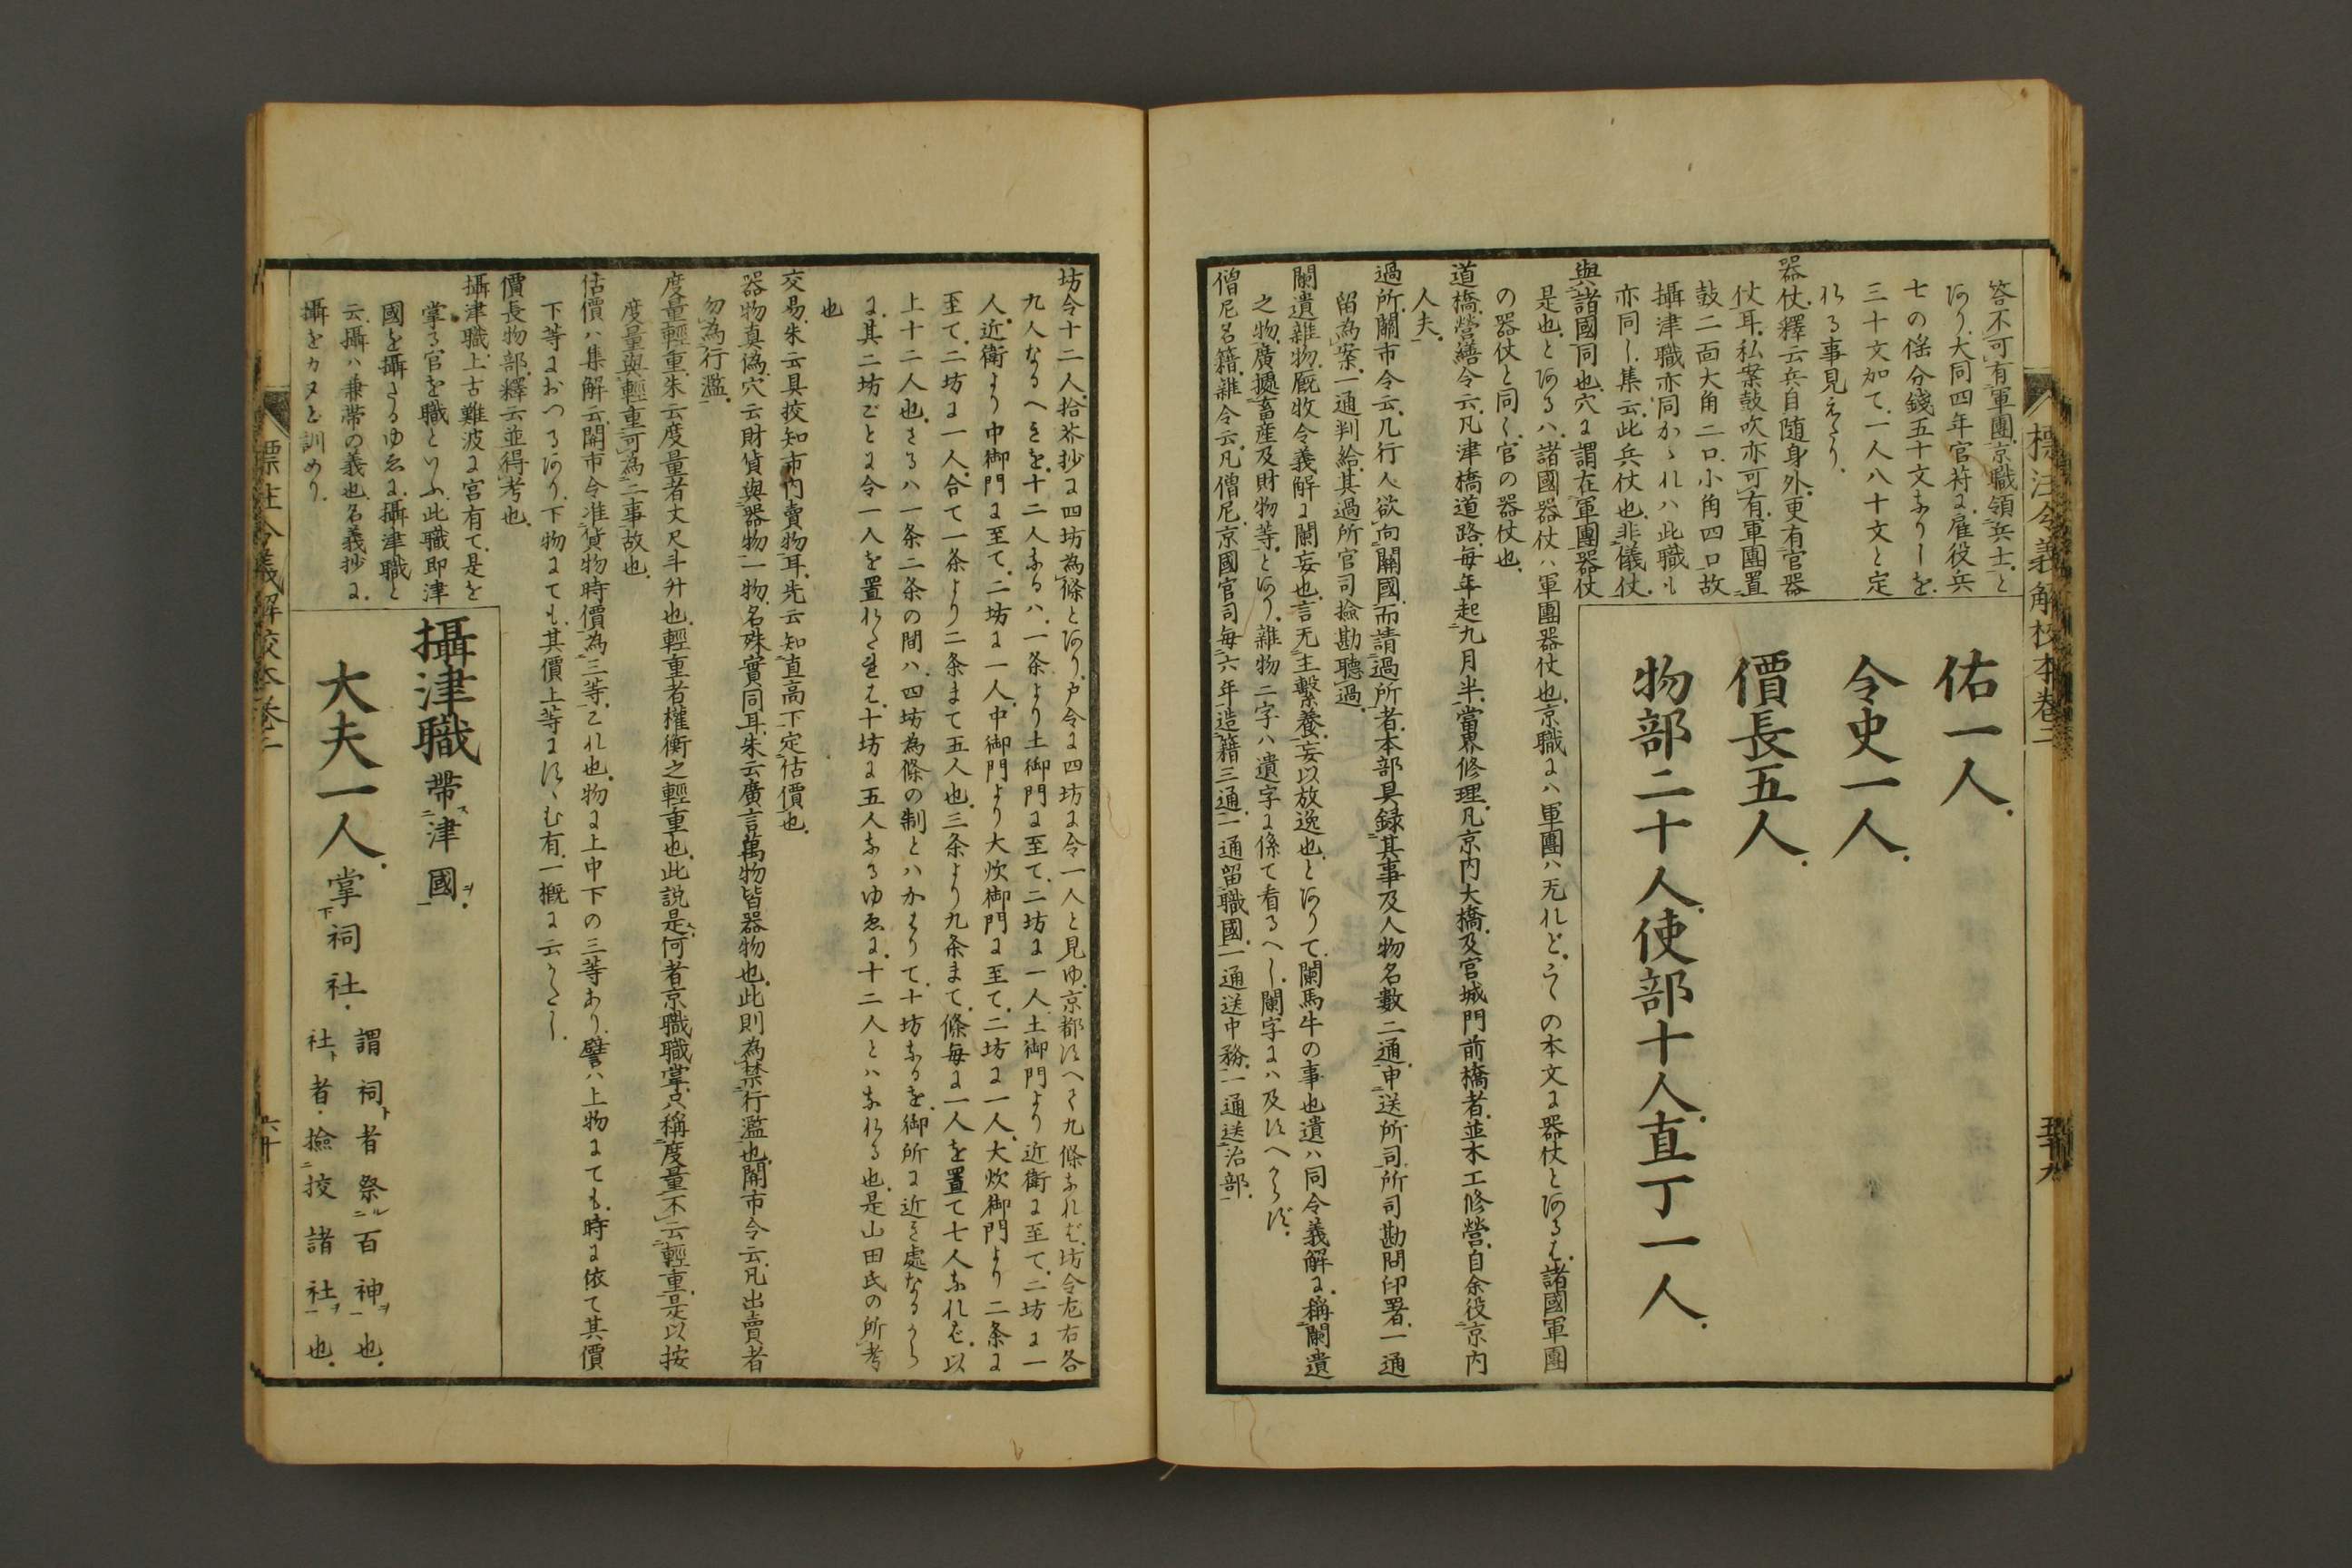 標注令義解校本卷二
五十九
答不可有軍團京職領兵士と
あり大同四年官符に雇役兵
七の徭分錢五十文なりしを
三十文加て一人八十文と定
れる事見えたり
器仗釋云兵自随身外更有官器
仗耳私案鼓吹亦可有軍團置
鼓二面大角二口小角四口故
攝津職亦同かゝれハ此職も
亦同し集云此兵仗也非儀仗
與諸國同也穴に謂在軍團器仗
是也とあるハ諸國器仗ハ軍團器仗也京職にハ軍團ハ无れどこゝの本文に器仗とあるは諸國軍團
の器仗と同く官の器仗也
道橋營繕令云凡津橋道路毎年起九月半當界修理凡京内大橋及官城門前橋者並木工修營自余役京内
人夫
過所關市令云凡行人欲向關國而請過所者本部具録其事及人物名數二通申送所司所司勘問印署一通
留為案一通判給其過所官司撿勘聽過
闌遺雜物厩牧令義解に闌妄也言无主繋養妄以放逸也とありて闌馬牛の事也遺ハ同令義解に稱闌遺
之物廣攝畜産及財物等とあり雜物二字ハ遺字に係て看るへし闌字にハ及ほへからず
僧尼名籍雜令云凡僧尼京國官司毎六年造籍三通一通留職國一通送中務一通送治部
佑一人
令史一人
價長五人
物部二十人使部十人直丁一人
坊令十二人拾芥抄に四坊為條とあり戸令に四坊に令一人と見ゆ京都すへて九條なれば坊令左右各
九人なるへきを十二人なるハ一条より土御門に至て二坊に一人土御門より近衛に至て二坊に一
人近衛より中御門に至て二坊に一人中御門より大炊御門に至て二坊に一人大炊御門より二条に
至て二坊に一人合て一条より二条まて五人也三条より九条まて條毎に一人を置て七人なれば以
上十二人也さるハ一条二条の間ハ四坊為條の制とハかはりて十坊なるを御所に近き處なるから
に其二坊ごとに令一人を置れたれは十坊に五人なるゆゑに十二人とハなれる也是山田氏の所考
也
交易朱云具挍知市内賣物耳先云知直高下定估價也
器物真偽穴云財貨與器物一物名殊實同耳朱云廣言萬物皆器物也此則為禁行濫也關市令云凡出賣者
勿為行濫
度量輕重朱云度量者丈尺斗升也輕重者權衡之輕重也此説是何者京職職掌只稱度量不云輕重是以按
度量與輕重可為二事故也
估價ハ集解云關市令准貨物時價為三等乙れ也物に上中下の三等あり譬ハ上物にても時に依て其價
下等におつるあり下物にても其價上等にすゝむ有一概に云かたし
價長物部釋云並得考也
攝津職上古難波に宮有て是を
掌る官を職といふ此職即津
國を攝さるゆゑに攝津職と
云攝ハ兼帶の義也名義抄に
攝をカヌと訓めり
攝津職帶津國
大夫一人掌祠社謂祠者祭百神也
社者撿挍諸社也
標注令義解校本卷二
六十